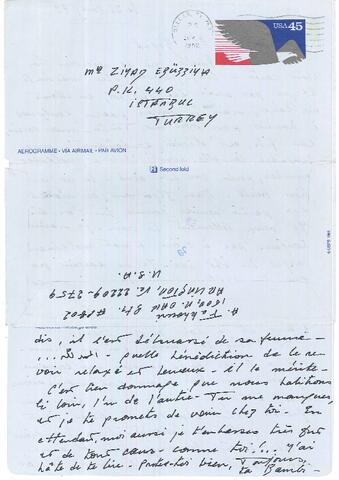 USA 45
Mr Ziyad Ebüzziya
P.K. 440
İstanbul
TURKEY
AEROGRAMME • VIA AIRMAIL • PAR AVION
2 Second fold
A.
1600, N. Oak St. #
ARLINGTON, 22209-2759
U.S.A
dis, il s'est débarrassé de sa femme —
... quelle bénédiction de le re-
voir relaxé et heureux - il le mérite -
C'est bien dommage que nous habitions
si loin, l'un de l'autre - Tu me manques,
et je te promets de venir chez toi - En
attendant, moi aussi je t'embrasse très fort
et de tout cœur - comme toi!... J'ai
hâte de te lire - Portes-toi bien, Toujours,
ta